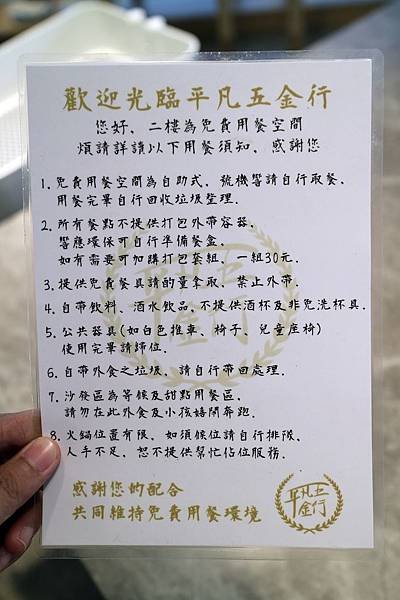 歡迎光臨平凡五金行
您好、二樓為免費用餐空間
煩請詳讀以下用餐須知、感謝您
1. 免費用餐空間為自助式、號機響請自行取餐、
用餐完畢自行回收垃圾整理.
2. 所有餐點不提供打包外帶容器.
響應環保可自行準備餐盒.
如有需要可加購打包套組、一組30元.
3. 提供免費餐具請酌量拿取、禁止外帶.
4. 自帶飲料、酒水飲品,不提供酒杯及非免洗杯具.
5. 公共器具(如白色推車、椅子、兒童座椅)
使用完畢請歸位.
6. 自帶外食之垃圾、請自行帶回處理.
7. 沙發區為等候及甜點用餐區.
請勿在此外食及小孩嬉鬧奔跑.
8. 火鍋位置有限、如須候位請自行排隊、
人手不足、恕不提供幫忙佔位服務.
感謝您的配合
共同維持免費用餐環境
平凡五金行